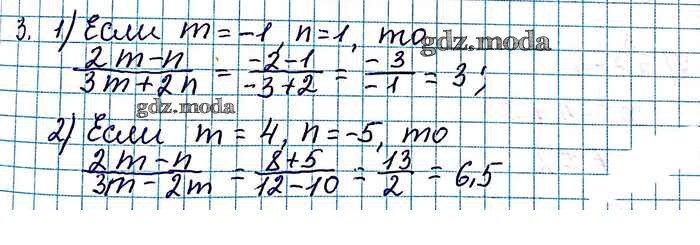 3. 1) Если m = -1, n = 1, то
gdz.moda
(2m-n)/(3m+2n) = (-2-1)/(-3+2) = (-3)/(-1) = 3;
gdz.moda
2) Если m = 4, n = -5, то
(2m-n)/(3m-2m) = (8+5)/(12-10) = 13/2 = 6,5